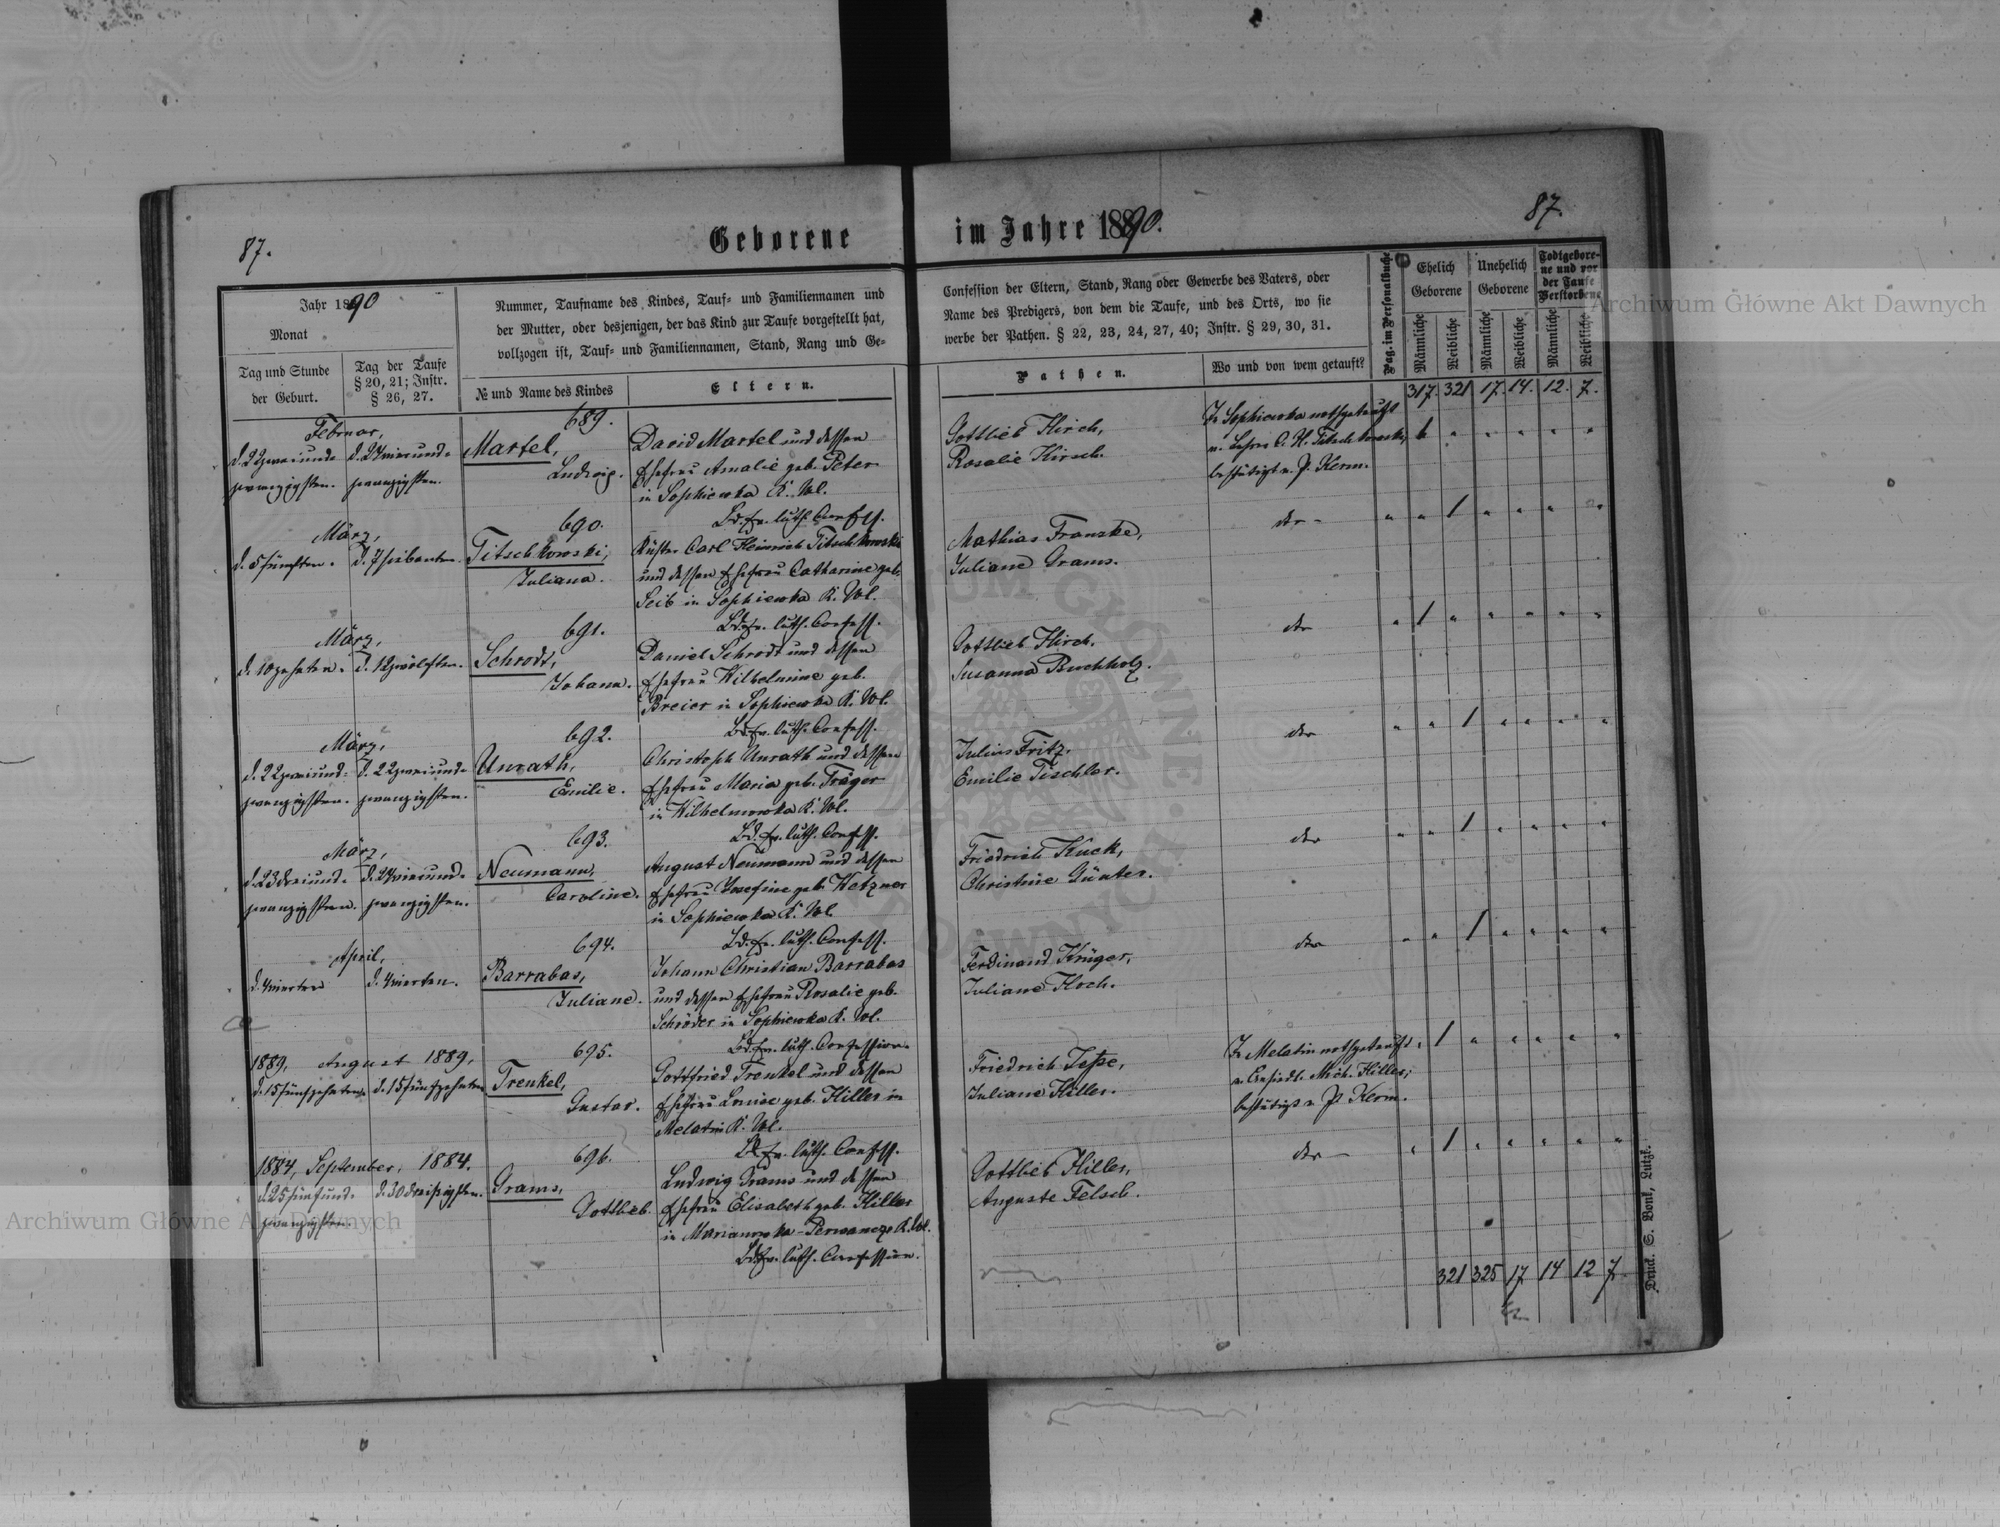 87.
Geborene
im Jahre 1890.
87.
Jahr 1890
Monat
Tag und Stunde
der Geburt.
Tag der Taufe
§ 20, 21; Instr.
§ 26, 27.
Nummer, Taufname des Kindes, Tauf- und Familiennamen und
der Mutter, oder desjenigen, der das Kind zur Taufe vorgestellt hat,
vollzogen ist, Tauf- und Familiennamen, Stand, Rang und Ge-
№ und Name des Kindes
Eltern.
Confession der Eltern, Stand, Rang oder Gewerbe des Vaters, oder
Name des Predigers, von dem die Taufe, und des Orts, wo sie
werbe der Pathen. § 22, 23, 24, 27, 40; Instr. § 29, 30, 31.
Pathen.
Wo und von wem getauft?
Pag. im Personalbuche
Ehelich
Geborene
Unehelich
Geborene
Todtgebore-
ne und vor
der Taufe
Verstorbene
Männliche
Weibliche
Männliche
Weibliche
Männliche
Weibliche
317. 321 17. 14. 12. 7.
Februar,
d. 22 zweiund-
zwanzigsten.
d. 24 vierund-
zwanzigsten.
689.
Martel,
Ludwig.
David Martel und dessen
Ehefrau Amalie geb. Peter
in Sophiewka K. Wl.
Bd. ev. luth. Confess.
Gottlieb Hirch,
Rosalie Hirsch.
In Sophiewka nothgetauft
v. Lehrer C. H. Titschkowski,
bestätigt v. P. Kerm.
März,
d. 5 fünften.
d. 7 siebenten.
690.
Titschkowski,
Juliana.
Küster Carl Heinrich Titschkowski
und dessen Ehefrau Catharine geb.
Seib in Sophiewka K. Wl.
Bd. ev. luth. Confess.
Mathias Franzke,
Juliane Grams.
dto
März,
d. 10 zehnten.
d. 12 zwölften.
691.
Schrodt,
Johann.
Daniel Schrodt und dessen
Ehefrau Wilhelmine geb.
Breier in Sophiewka K. Wl.
Bd. ev. luth. Confess.
Gottlieb Hirch.
Susanna Buchholz.
dto
März,
d. 22 zweiund-
zwanzigsten.
d. 22 zweiund-
zwanzigsten.
692.
Unrath,
Emilie.
Christoph Unrath und dessen
Ehefrau Maria geb. Träger
in Wilhelmowka K. Wl.
Bd. ev. luth. Confess.
Julius Fritz,
Emilie Tischler.
dto
März,
d. 23 dreiund-
zwanzigsten.
d. 24 vierund-
zwanzigsten.
693.
Neumann,
Caroline.
August Neumann und dessen
Ehefrau Josefine geb. Hetzner
in Sophiewka K. Wl.
Bd. ev. luth. Confess.
Friedrich Kuck,
Christine Günter.
dto
April,
d. 4 vierten
d. 4 vierten.
694.
Barrabas,
Juliane.
Johann Christian Barrabas
und dessen Ehefrau Rosalie geb.
Schröder in Sophiewka K. Wl.
Bd. ev. luth. Confession.
Ferdinand Krüger,
Juliane Hoch.
dto
1889, August 1889,
d. 15 fünfzehnten.
d. 15 fünfzehnten
695.
Trenkel,
Gustav.
Gottfried Trenkel und dessen
Ehefrau Louise geb. Hiller in
Melatin K. Wl.
Bd. ev. luth. Confess.
Friedrich Teske,
Juliane Hiller.
In Melatin nothgetauft
v. Ansiedl. Mich. Hiller;
bestätigt v. P. Kerm.
1884, September, 1884.
d. 25 fünfund-
zwanzigsten.
d. 30 dreißigsten.
696.
Grams,
Gottlieb.
Ludwig Grams und dessen
Ehefrau Elisabeth geb. Hiller
in Marianowka-Perwancze K. Wl.
Bd. ev. luth. Confession.
Gottlieb Hiller,
Auguste Felsch.
dto
321 325 17 14 12 7.
Druck. S. Bonk, Lutzk.
Archiwum Główne Akt Dawnych
Archiwum Główne Akt Dawnych